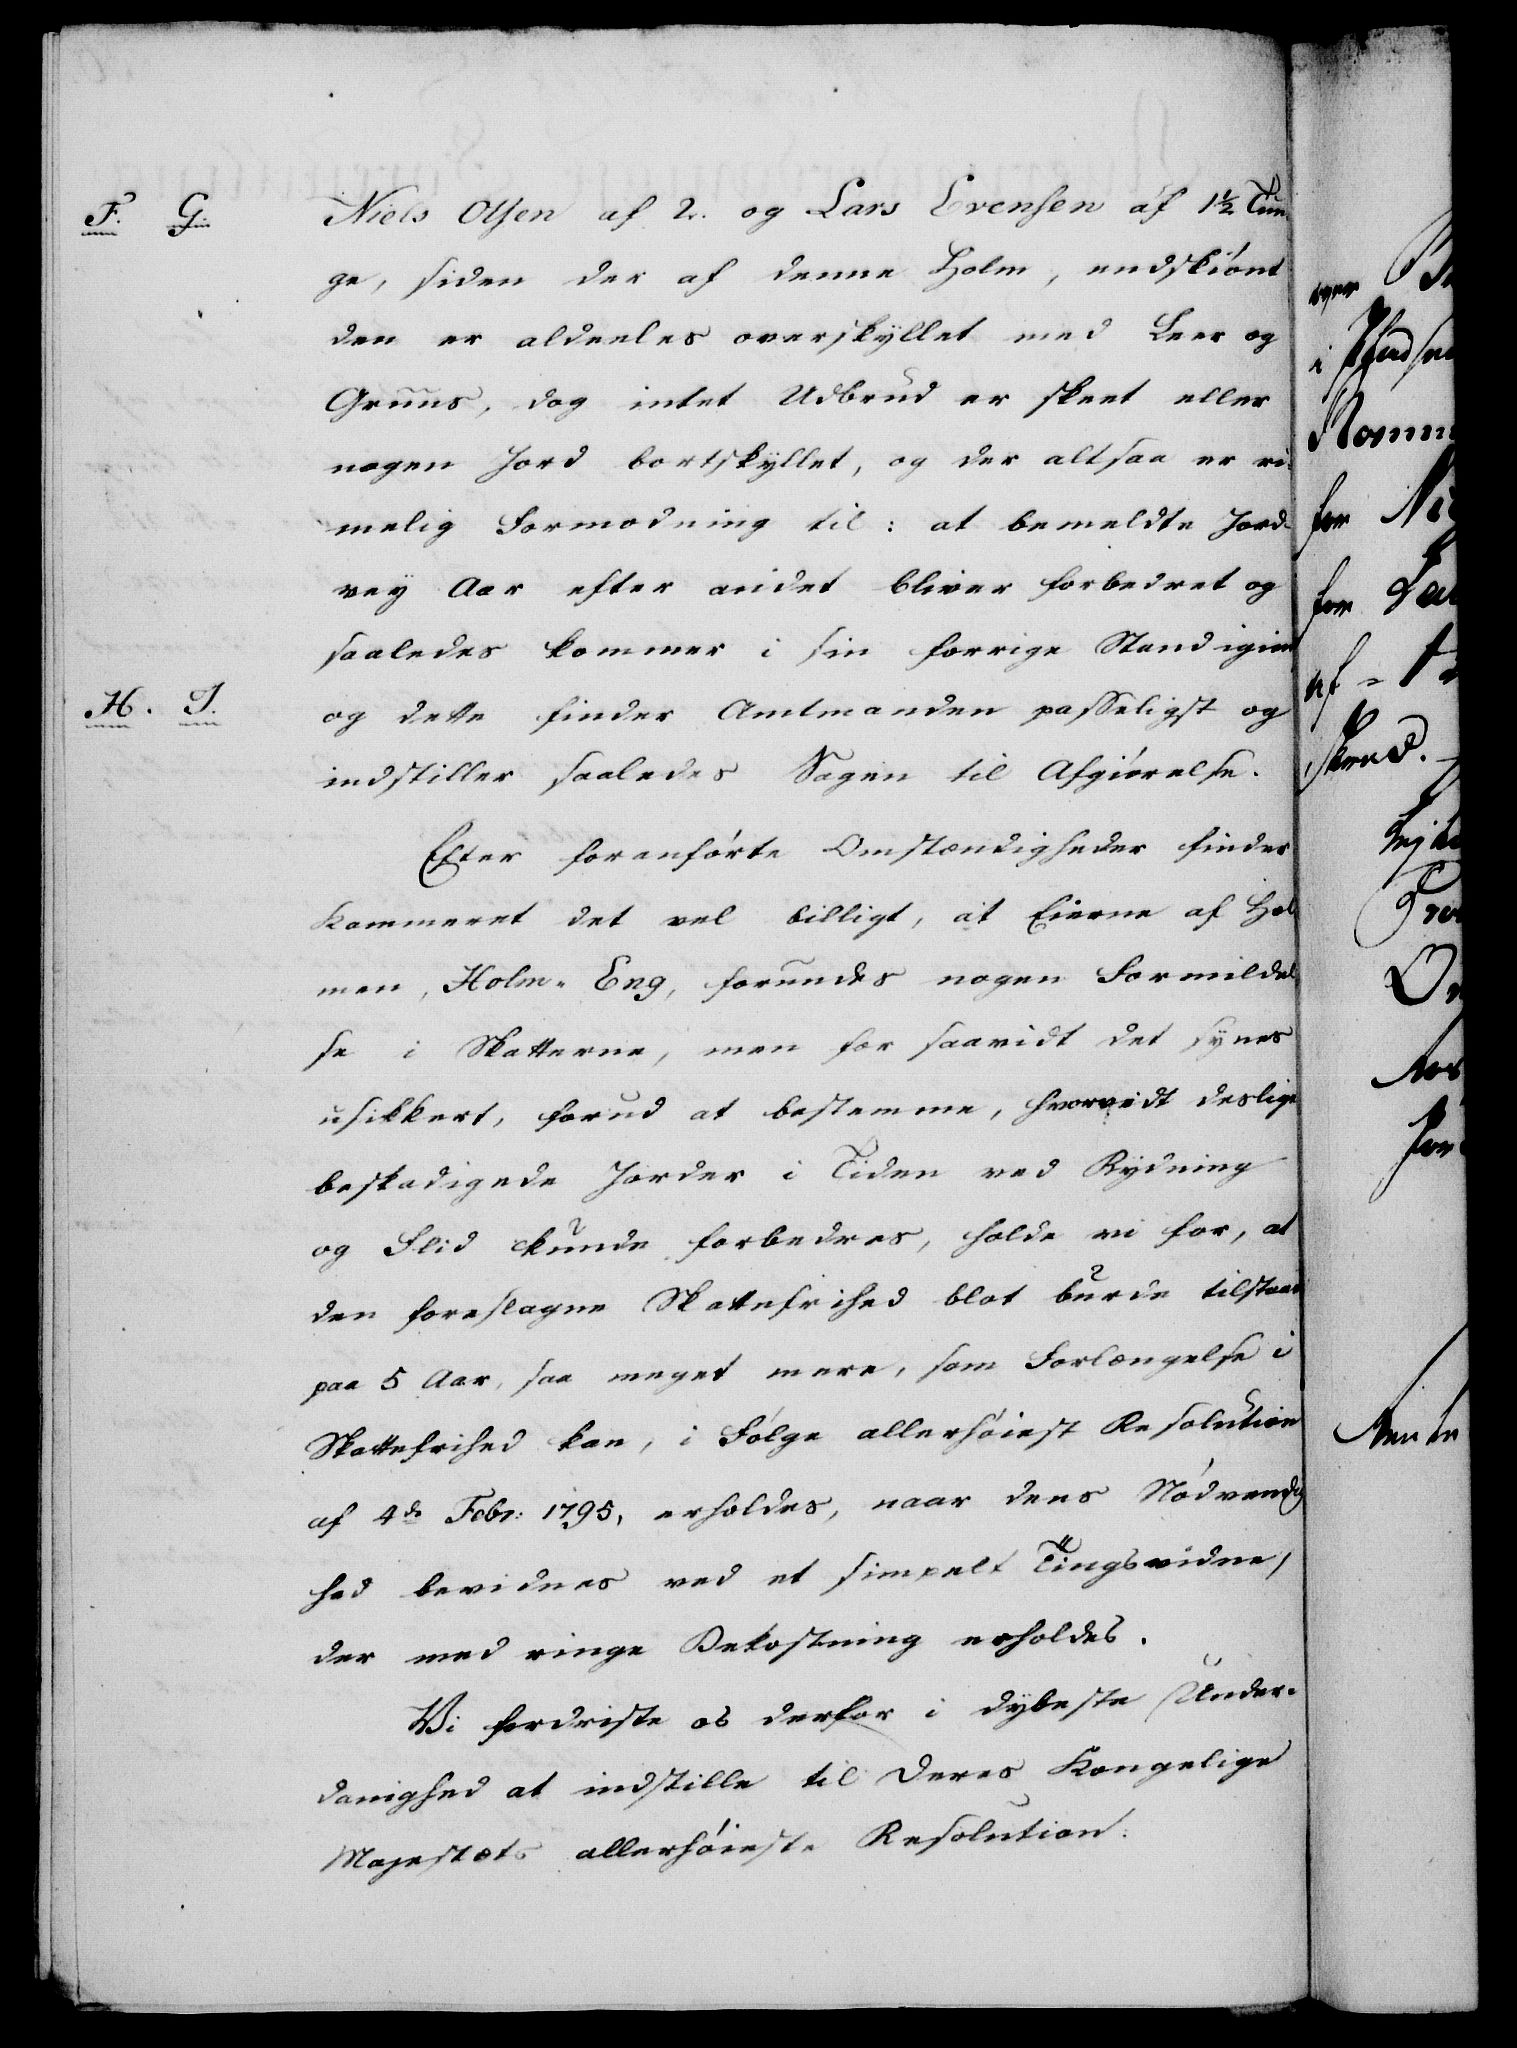 F. G.
Niels Olsen af 2. og Lars Evensen af 1½ Tun¬
ge, siden der af denne Holm, endskiönt
den er aldeeles overskyllet med Leer og
Gruus, dog intet Udbrud er skeet eller
nogen Jord bortskyllet, og der altsaa er ri¬
melig Formodning til: at bemeldte Jord¬
vey Aar efter andet bliver forbedret og
saaledes kommer i sin forrige Stand igien
H. I.
og dette finder Amtmanden passeligst og
indstiller saaledes Sagen til Afgiørelse.
Efter foranførte Omstændigheder finder
Kammeret det vel billigt, at Eierne af Hol
men, Holm-Eng, forundes nogen Formildel
se i Skatterne, men for saavidt det synes
usikkert, forud at bestemme, hvorvidt deslige
beskadigede Jorder i Tiden ved Rydning
og Flid kunde forbedres, holde vi for, at
den foreslagne Skattefrihed blot burde tilstaaes
paa 5 Aar, saa meget mere, som Forlængelse i
Skattefrihed kan, i Følge allerhøiest Resolution
af 4de Febr: 1795, erholdes, naar dens Nødvendig
hed bevidnes ved et simpelt Tingsvidne,
der med ringe Bekostning erholdes.
Vi fordriste os derfor i dybeste Under¬
danighed at indstille til Deres Kongelige
Majestæts allerhøieste Resolution: